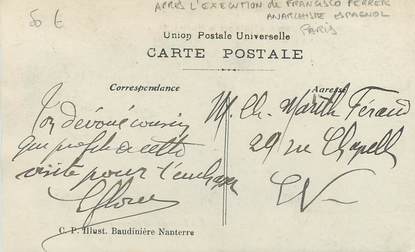 50 €
APRÈS L'EXECUTION de FRANCISCO FERRER
ANARCHISTE ESPAGNOL
PARIS
Union Postale Universelle
CARTE POSTALE
Correspondance
Adresse
Ton dévoué cousin
qui profite de cette
visite pour t'embrasser
M. Ch. Marith Féraud
29 rue Chapell
EV
C. P. Illust. Baudinière Nanterre